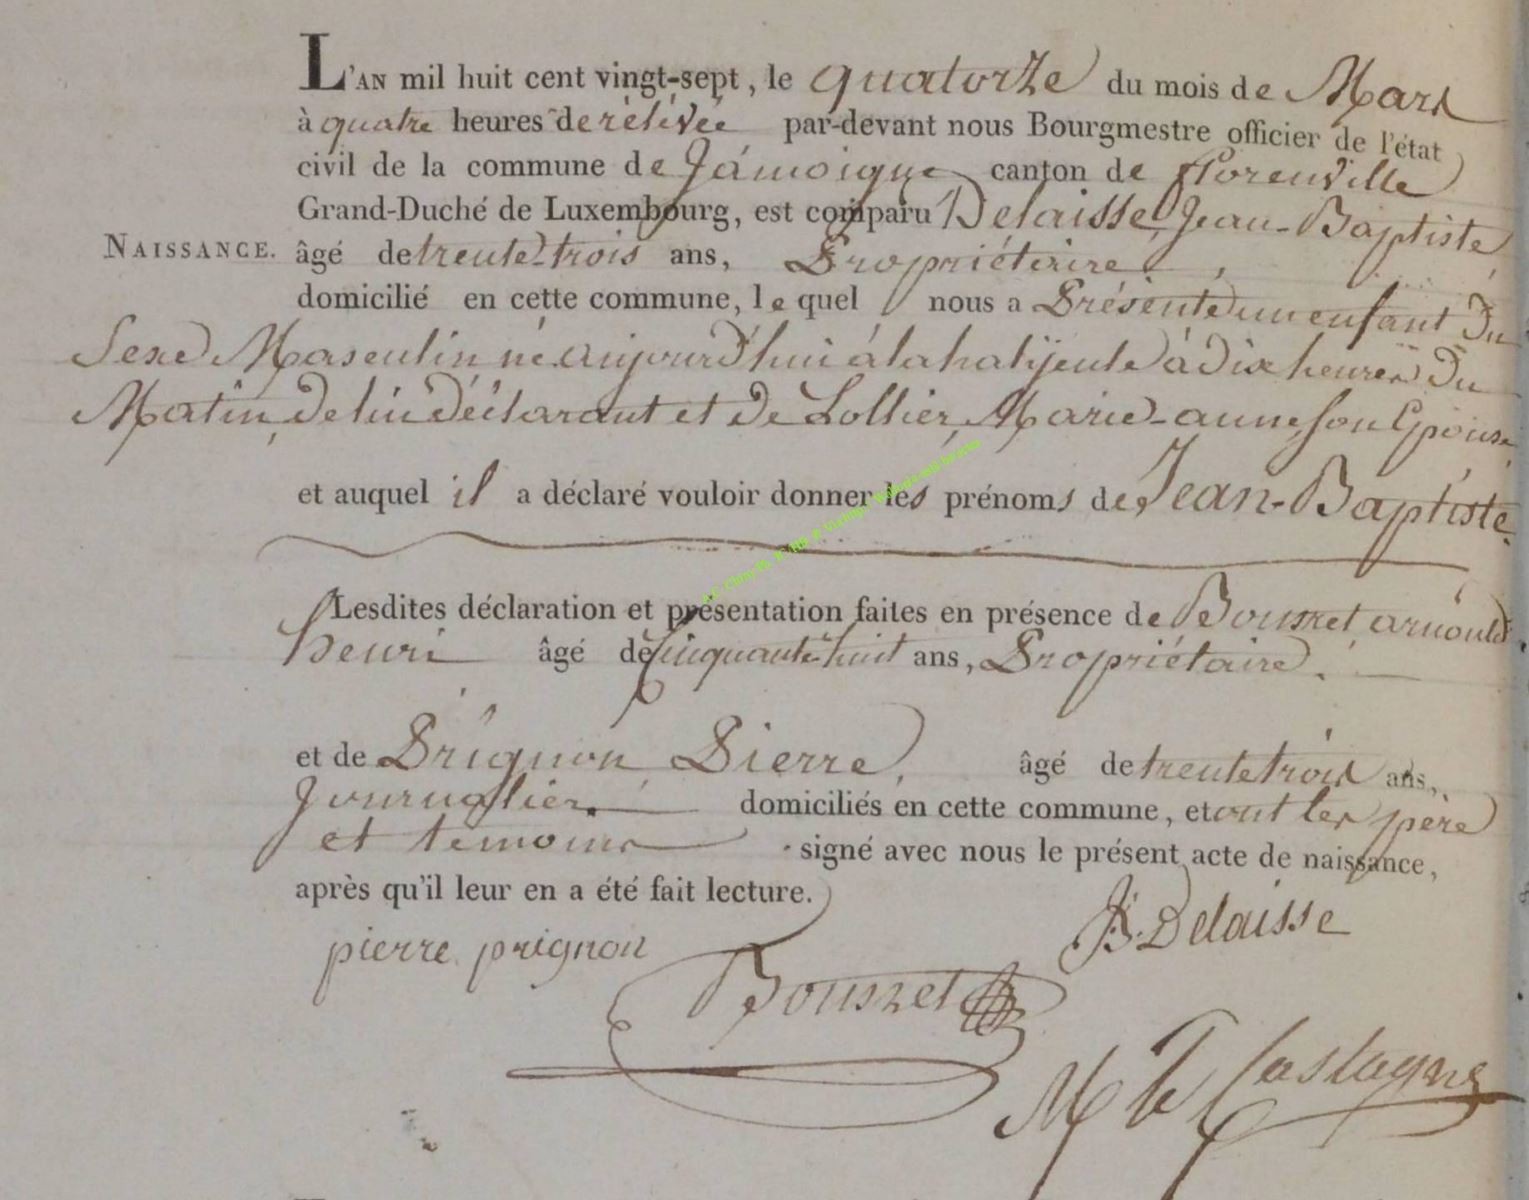 L'AN mil huit cent vingt-sept, le quatorze du mois de Mars
à quatre heures de rélévée par-devant nous Bourgmestre officier de l'état
civil de la commune de Jámoigne canton de florenville
Grand-Duché de Luxembourg, est comparu Delaisse, Jean-Baptiste,
NAISSANCE. âgé de trente-trois ans, Propriétaire,
domicilié en cette commune, le quel nous a Présenté un enfant du
Sexe Masculin né aujourd'hui à dix heures du
Matin, de lui déclarant et de Lollier, Marie-anne, son Epouse,
et auquel il a déclaré vouloir donner les prénoms de Jean-Baptiste.
Lesdites déclaration et présentation faites en présence de arnould
henri âgé de Cinquante-huit ans, Propriétaire.
et de Prignon Pierre, âgé de trente trois ans,
Journalier. domiciliés en cette commune, et ont les père
et temoins signé avec nous le présent acte de naissance,
après qu'il leur en a été fait lecture.
pierre prignon
JB. Delaisse